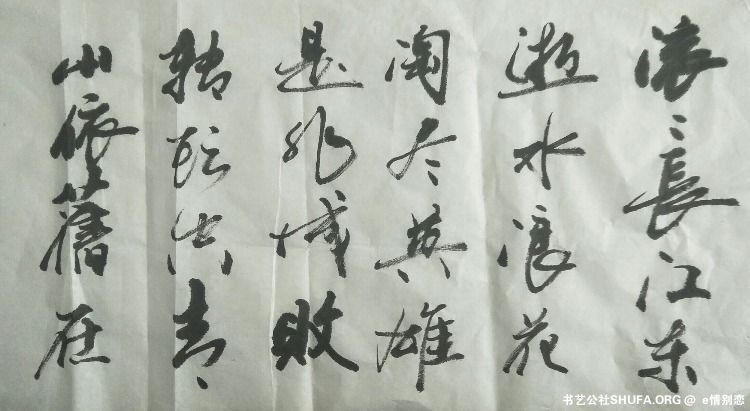 滚〻長江东
逝水浪花
淘尽英雄
是非成敗
转头空青〻
山依舊在
书艺公社SHUFA.ORG @ e情别恋